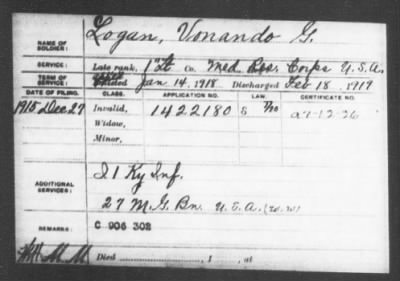 NAME OF SOLDIER: Logan, Vonando G.
SERVICE: Late rank, 1" Lt Co. Med. Res. Corps U.S.A.
TERM OF SERVICE: Enlisted Jan 14, 1918 Discharged Feb 18, 1919
DATE OF FILING. CLASS. APPLICATION NO. LAW. CERTIFICATE NO.
1918 Dec 27 Invalid, 1422180 S
Widow,
Minor,
ADDITIONAL SERVICES: 2 1 Ky Inf.
27 M.G. Bn. U.S.A.
REMARKS: C 906 302
Died , 1 , at